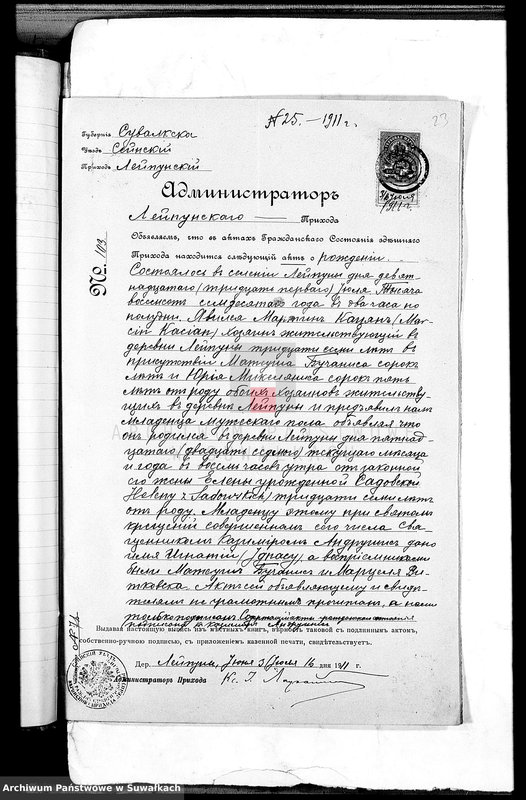 № 25. – 1911 г.
23
Губернія Сувалкска
Уѣздъ Сейнскій
Приходъ Лейпунскій
3/16 Іюля
1911 г.
Администраторъ
Лейпунскаго Прихода
Объявляемъ, что въ актахъ Гражданскаго Состоянія здѣшняго
Прихода находится слѣдующій актъ о рожденіи.
No. 103
Состоялось въ селеніи Лейпуны дня девят-
надцатаго (тридцать перваго) Іюля Тысяча
восемсотъ семдесятаго года въ два часа по
полудни. Явился Мартинъ Кацянъ (Mar-
cin Kacian) хозяинъ жительствующій въ
деревни Лейпуны тридцати семи лѣтъ въ
присутствіи Матеуша Бучаниса сорокъ
лѣтъ и Юрія Микелянича сорокъ пять
лѣтъ отъ роду обоихъ хозяиновъ жительству-
ющихъ въ деревни Лейпуны и предъявилъ намъ
младенца мужескаго пола объявляя что
онъ родился въ деревни Лейпуны дня пятнад-
цатаго (двадцать седмого) текущаго мѣсяца
и года въ восемь часовъ утра отъ законной
его жены Елены урожденной Садовской
тридцати семи лѣтъ
отъ роду. Младенцу этому при святомъ
крещеніи совершенномъ сего числа свя-
щенникомъ Казиміромъ Андрушисъ дано
имя Игнатій (Ignacy), а воспріемниками
были Матеушъ Бучанисъ и Марцеля Вит-
ковска. Актъ сей объявляющему и свидѣ-
телямъ неграмотнымъ прочитанъ, а нами
только подписанъ
подписалъ
Выдавая настоящую выпись изъ мѣстныхъ книгъ, вѣрность таковой съ подлиннымъ актомъ,
собственно-ручною подписью, съ приложеніемъ казенной печати, свидѣтельствуетъ.
Дер. Лейпуны, Іюня 3/Іюля 16 дня 1911 г.
Администраторъ Прихода Кс. І.
Archiwum Państwowe w Suwałkach